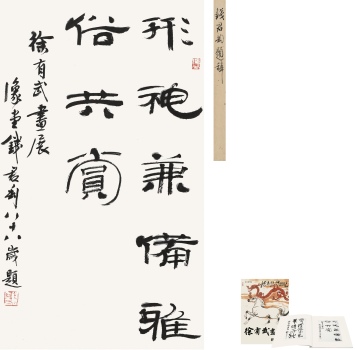 形神兼備雅
俗共賞
徐有武畫展
豫堂錢君匋八十八歲題
錢君匋題辭
徐有武畫